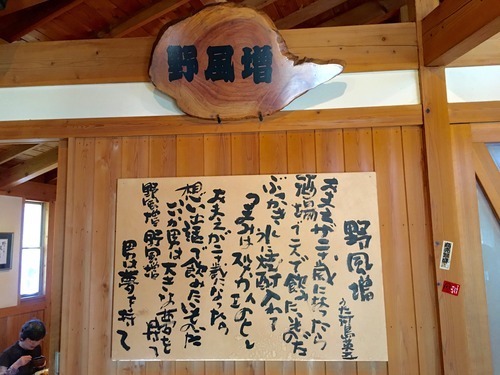 野風増
野風増
お前が二十歳になったら
酒場で二人で飲みたいものだ
ぶっかき氷に焼酎入れて
つまみはスルメかエイのヒレ
お前が二十歳になったら
想い出話で飲みたいものだ
いい男は大きい夢を持て
野風増 野風増
男は夢を持て